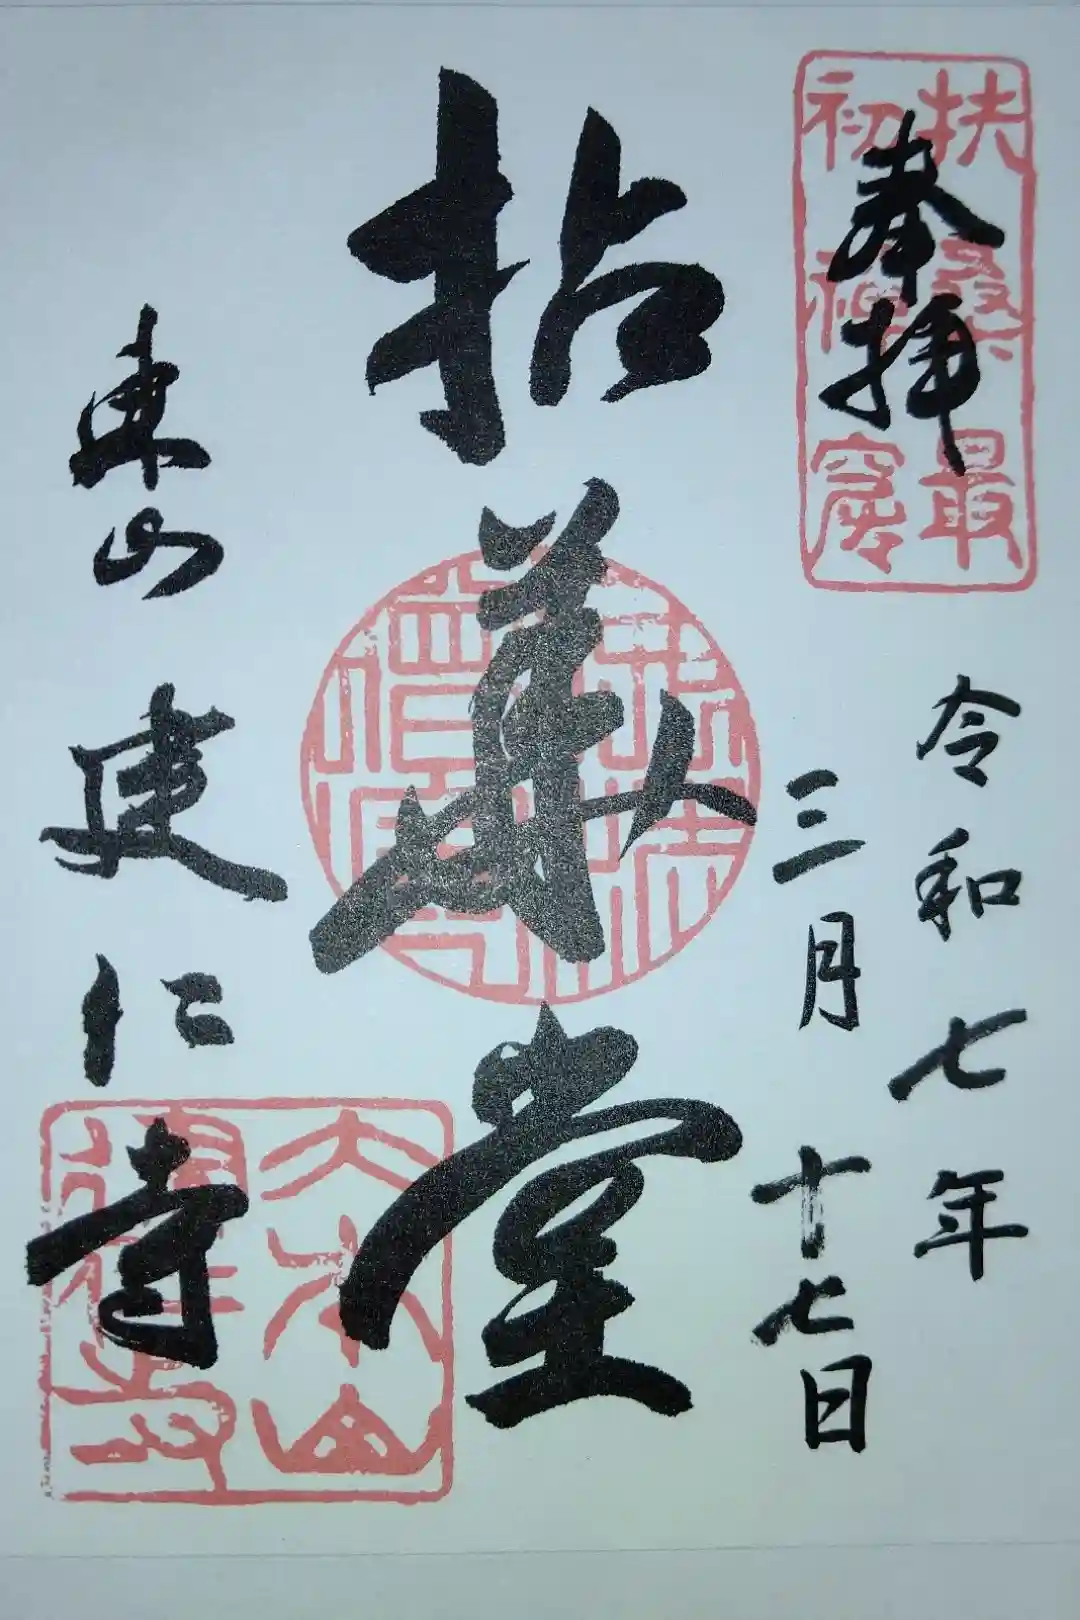 奉拝
扶桑最
初禅窟
令和七年
三月十七日
拈華堂
東山建仁寺
大本山
建仁寺